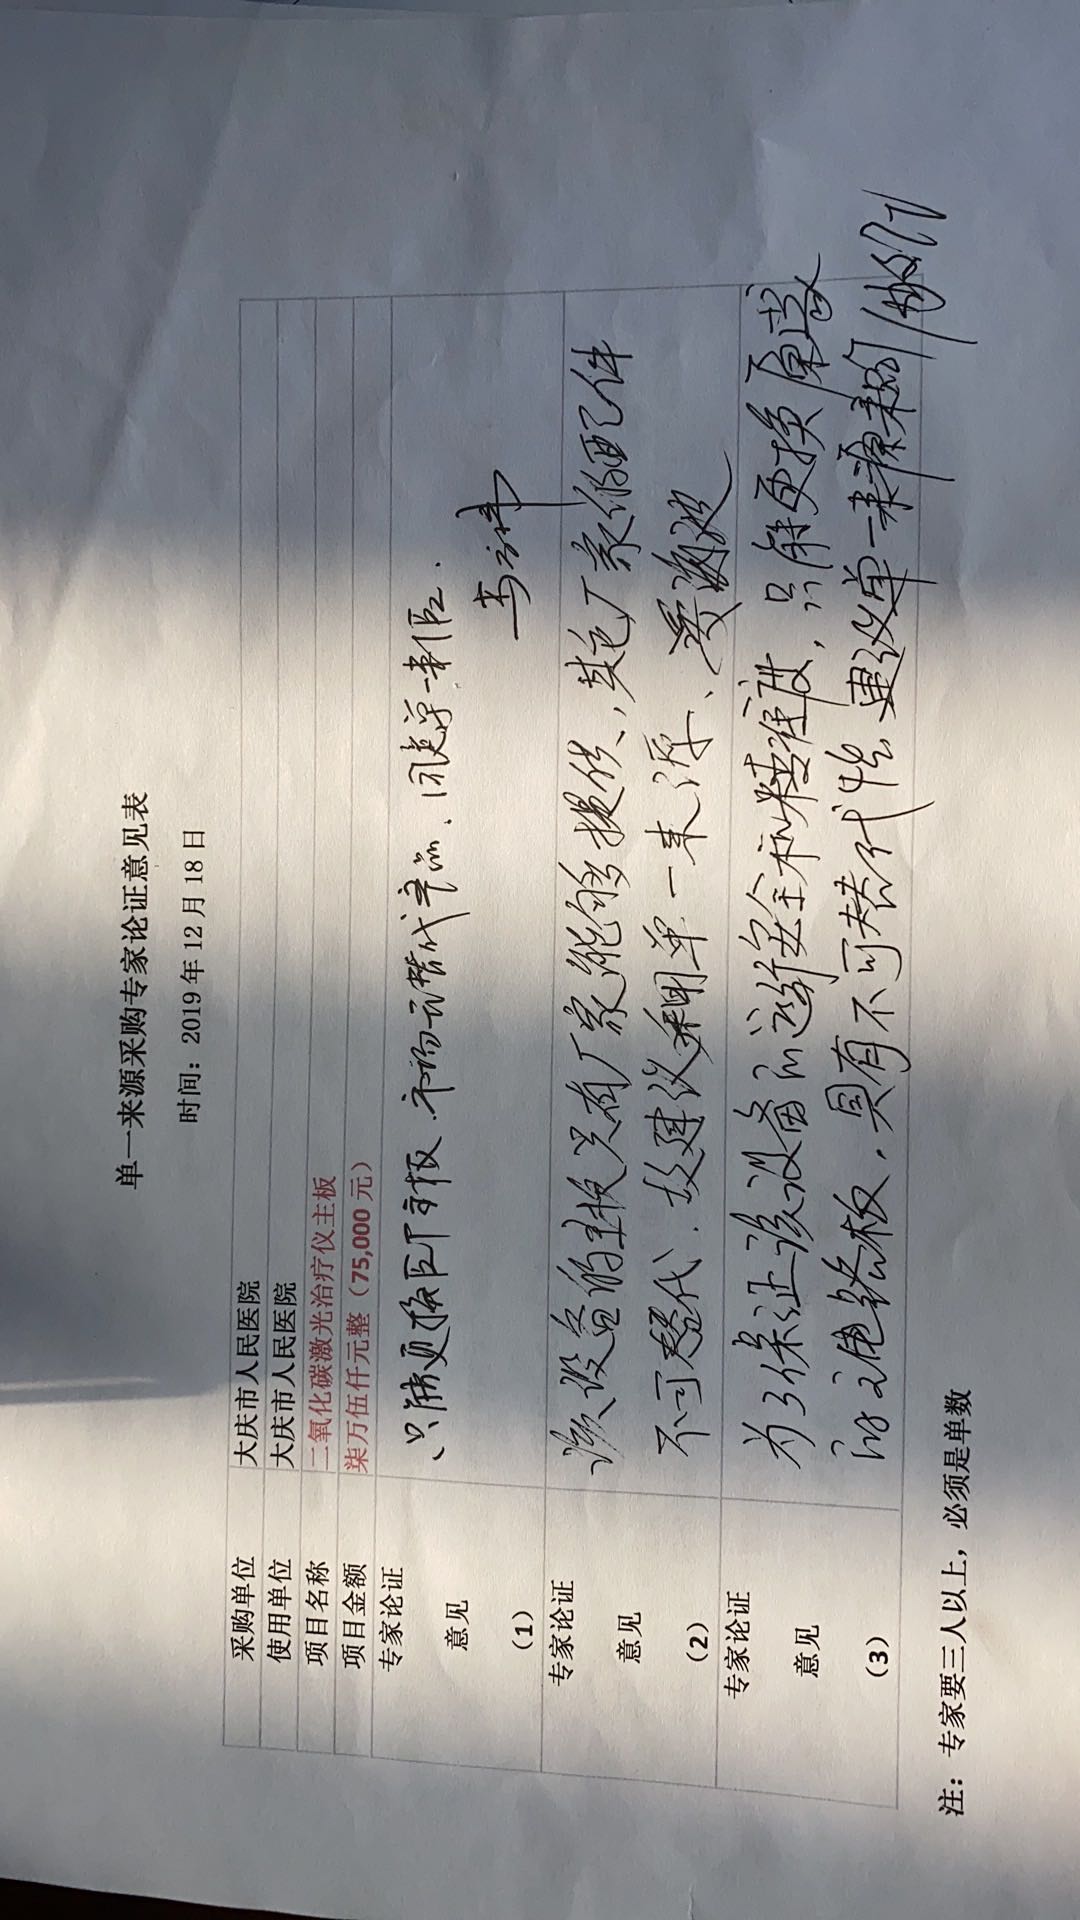 单一来源采购专家论证意见表
时间：2019年12月18日
采购单位 大庆市人民医院
使用单位 大庆市人民医院
项目名称 二氧化碳激光治疗仪主板
项目金额 柒万伍仟元整（75,000元）
专家论证
意见
（1）
只能更换原厂主板，市场无替代产品，同意单一来源。
专家论证
意见
（2）
该设备的主板只有厂家能够提供，其他厂家的配件
不可替代，故建议采用单一来源、
专家论证
意见
（3）
为了保证该设备的运行安全和精准度，只能更换原装
的电路板，具有不可替代性 建议单一来源采购
注：专家要三人以上，必须是单数